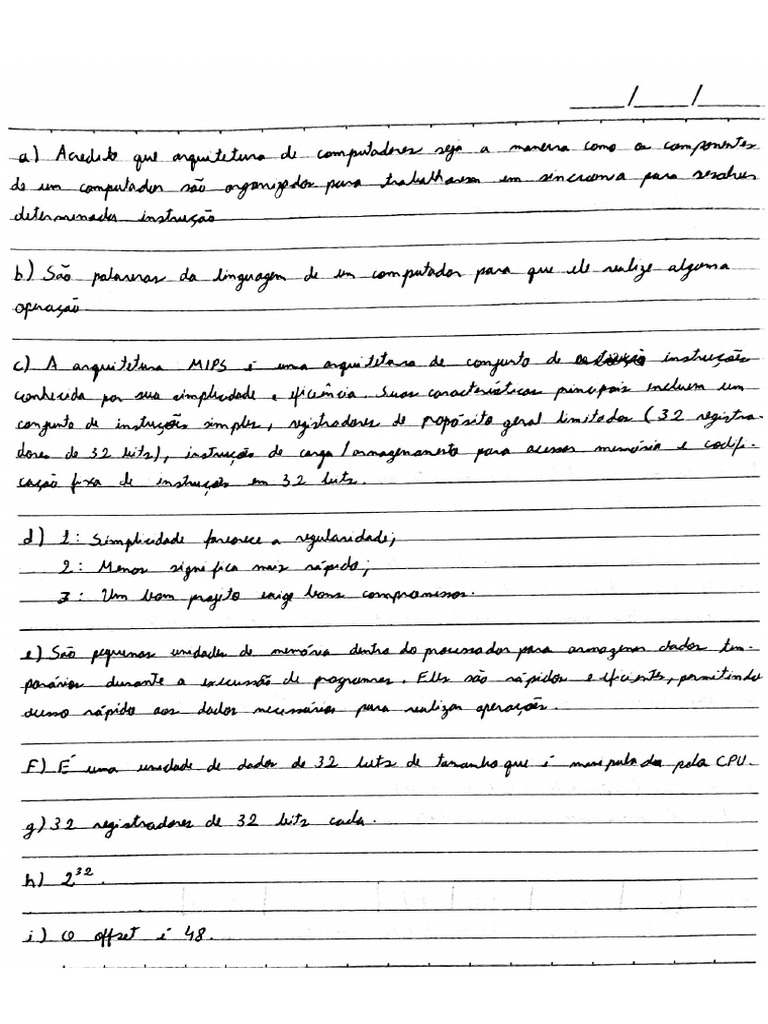 ___/___/___
a) Acredito que arquitetura de computadores seja a maneira como os componentes
de um computador são organizados para trabalharem em sincronia para resolver
determinadas instrução
b) São palavras da linguagem de um computador para que ele realize alguma
operação.
c) A arquitetura MIPS é uma arquitetura de conjunto de instruções
conhecida por sua simplicidade e eficiência. Suas características principais incluem um
conjunto de instruções simples, registradores de propósito geral limitados (32 registra-
dores de 32 bits), instruções de carga/armazenamento para acessar memória e codifi-
cação fixa de instruções em 32 bits.
d) 1: Simplicidade favorece a regularidade;
2: Menor significa mais rápido;
3: Um bom projeto exige bons compromissos.
e) São pequenas unidades de memória dentro do processador para armazenar dados tem-
porários durante a execussão de programas. Eles são rápidos e eficientes, permitindo
acesso rápido aos dados necessários para realizar operações.
F) É uma unidade de dados de 32 bits de tamanho que é manipulada pela CPU.
g) 32 registradores de 32 bits cada.
h) 2³².
i) O offset é 48.